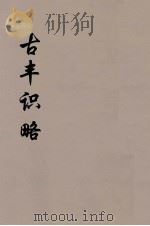 狗狗
古丰识略
mtoou.info